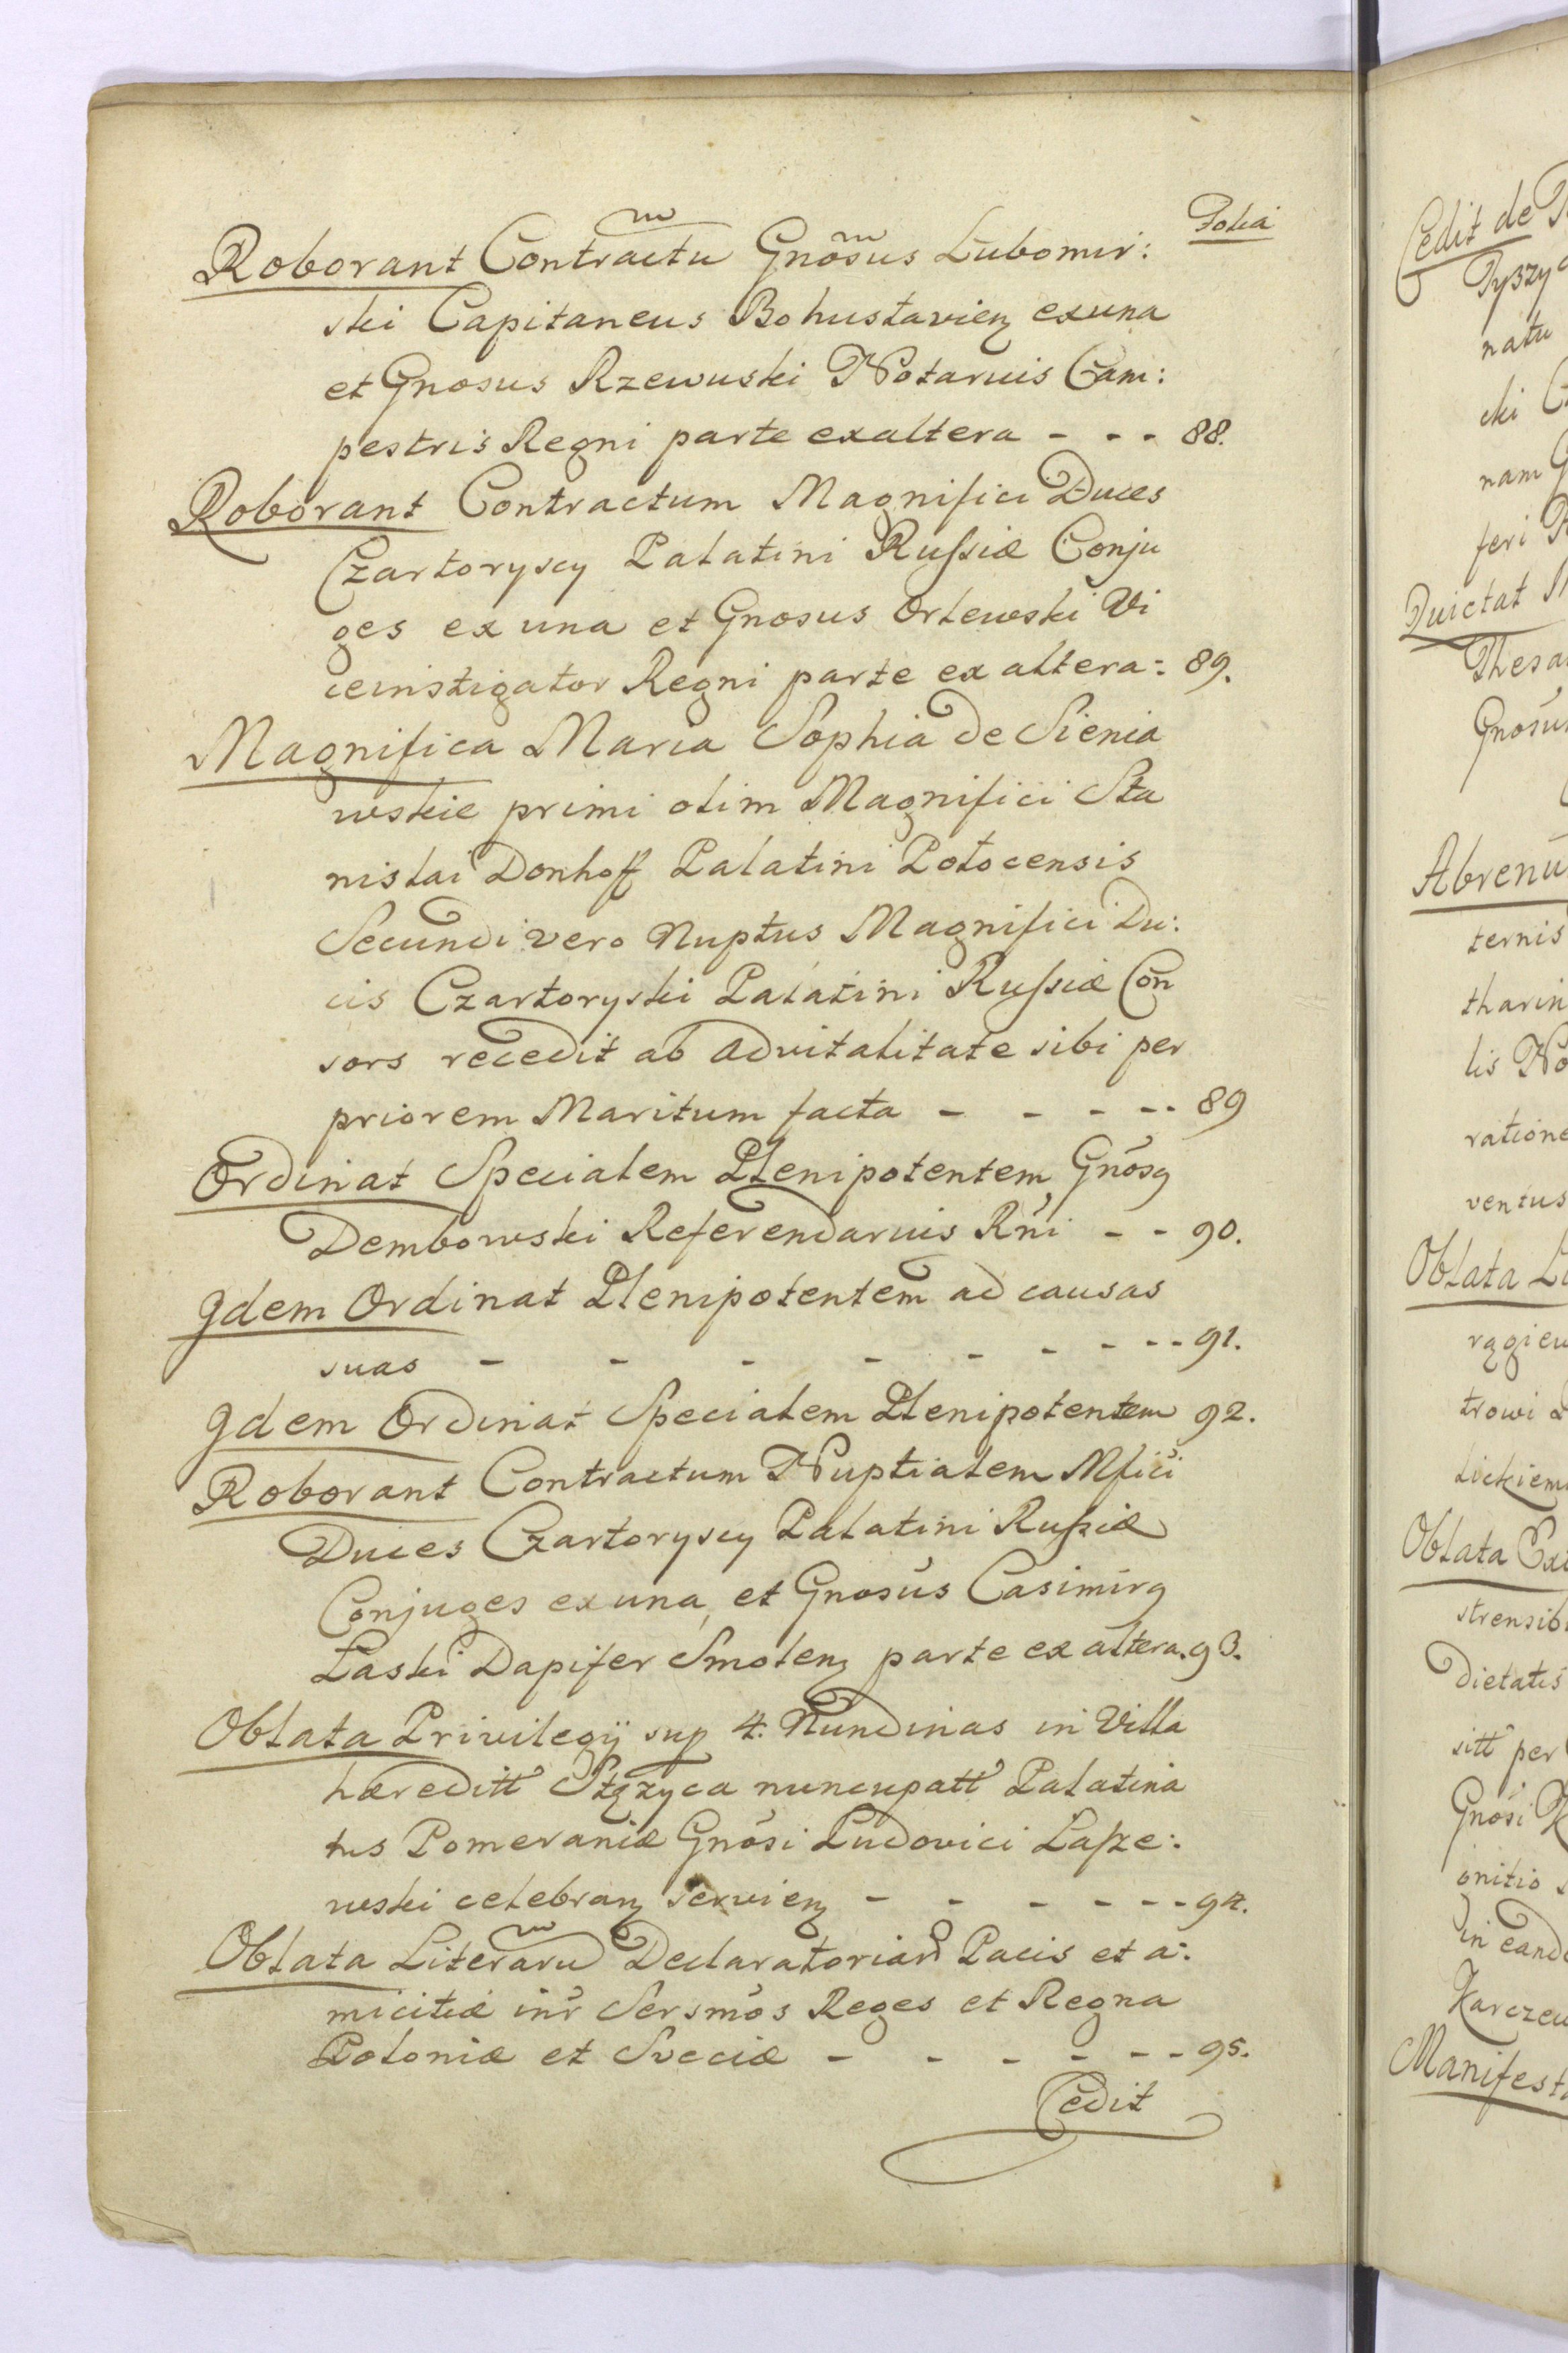 Folia
Roborant Contractu Gnosus Lubomir:
ski Capitaneus Bohuslavien exuna
et Gnosus Rzewuski Notarius Cam:
pestris Regni parte exaltera - - - 88.
Roborant Contractum Magnifici Duces
Czartoryscy Palatini Russiæ Conju
ges ex una et Gnosus Orlewski Vi
ceinstigator Regni parte ex altera: 89.
Magnifica Maria Sophia de Sienia
wskie primi olim Magnifici Sta
nislai Donhoff Palatini Polocensis
Secundi vero Nuptus Magnifici Du:
cis Czartoryski Palatini Russiæ Con
sors recedit ab advitalitate sibi per
priorem Maritum facta - - - - - 89
Ordinat Specialem Plenipotentem Gnosg
Dembowski Referendarius Rni - - 90.
Jdem Ordinat Plenipotentem ad causas
suas - - - - - - - - - 91.
Jdem Ordinat Specialem Plenipotentem 92.
Roborant Contractum Nuptialem Mfici
Duces Czartoryscy Palatini Russiæ
Conjuges ex una, et Gnosus Casimirg
Łaski Dapifer Smolen parte ex altera. 93.
Oblata Privilegij sup 4. Nundinas in Villa
hæreditt Stęzyca nuncupatt Palatina
tus Pomeraniæ Gnosi Ludovici Lasze:
wski celebran servien - - - - - - 94.
Oblata Literaru Declaratoriar Pacis et a:
micitiæ inr Sersmos Reges et Regna
Poloniæ et Sveciæ - - - - - - 95.
Cedit
Cedit de
Tyszy
natu
cki
nam
feri
Quictat
Thesa
Gnosu
Abrenu
ternis
tharin
lis No
ratione
ventus
Oblata Li
rągiew
trowi
lickiem
Oblata Ex
strensib
dietatis
sitt per
Gnosi
onitio
in eand
Karczew
Manifest